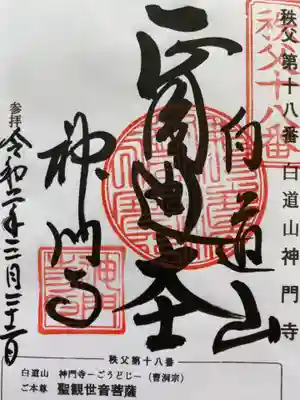 秩父第十八番 白道山神門寺
秩父十八番
白道山
圓通大士
神門寺
参拝
令和
秩父第十八番
白道山 神門寺-ごうどじ-(曹洞宗)
ご本尊 聖観世音菩薩